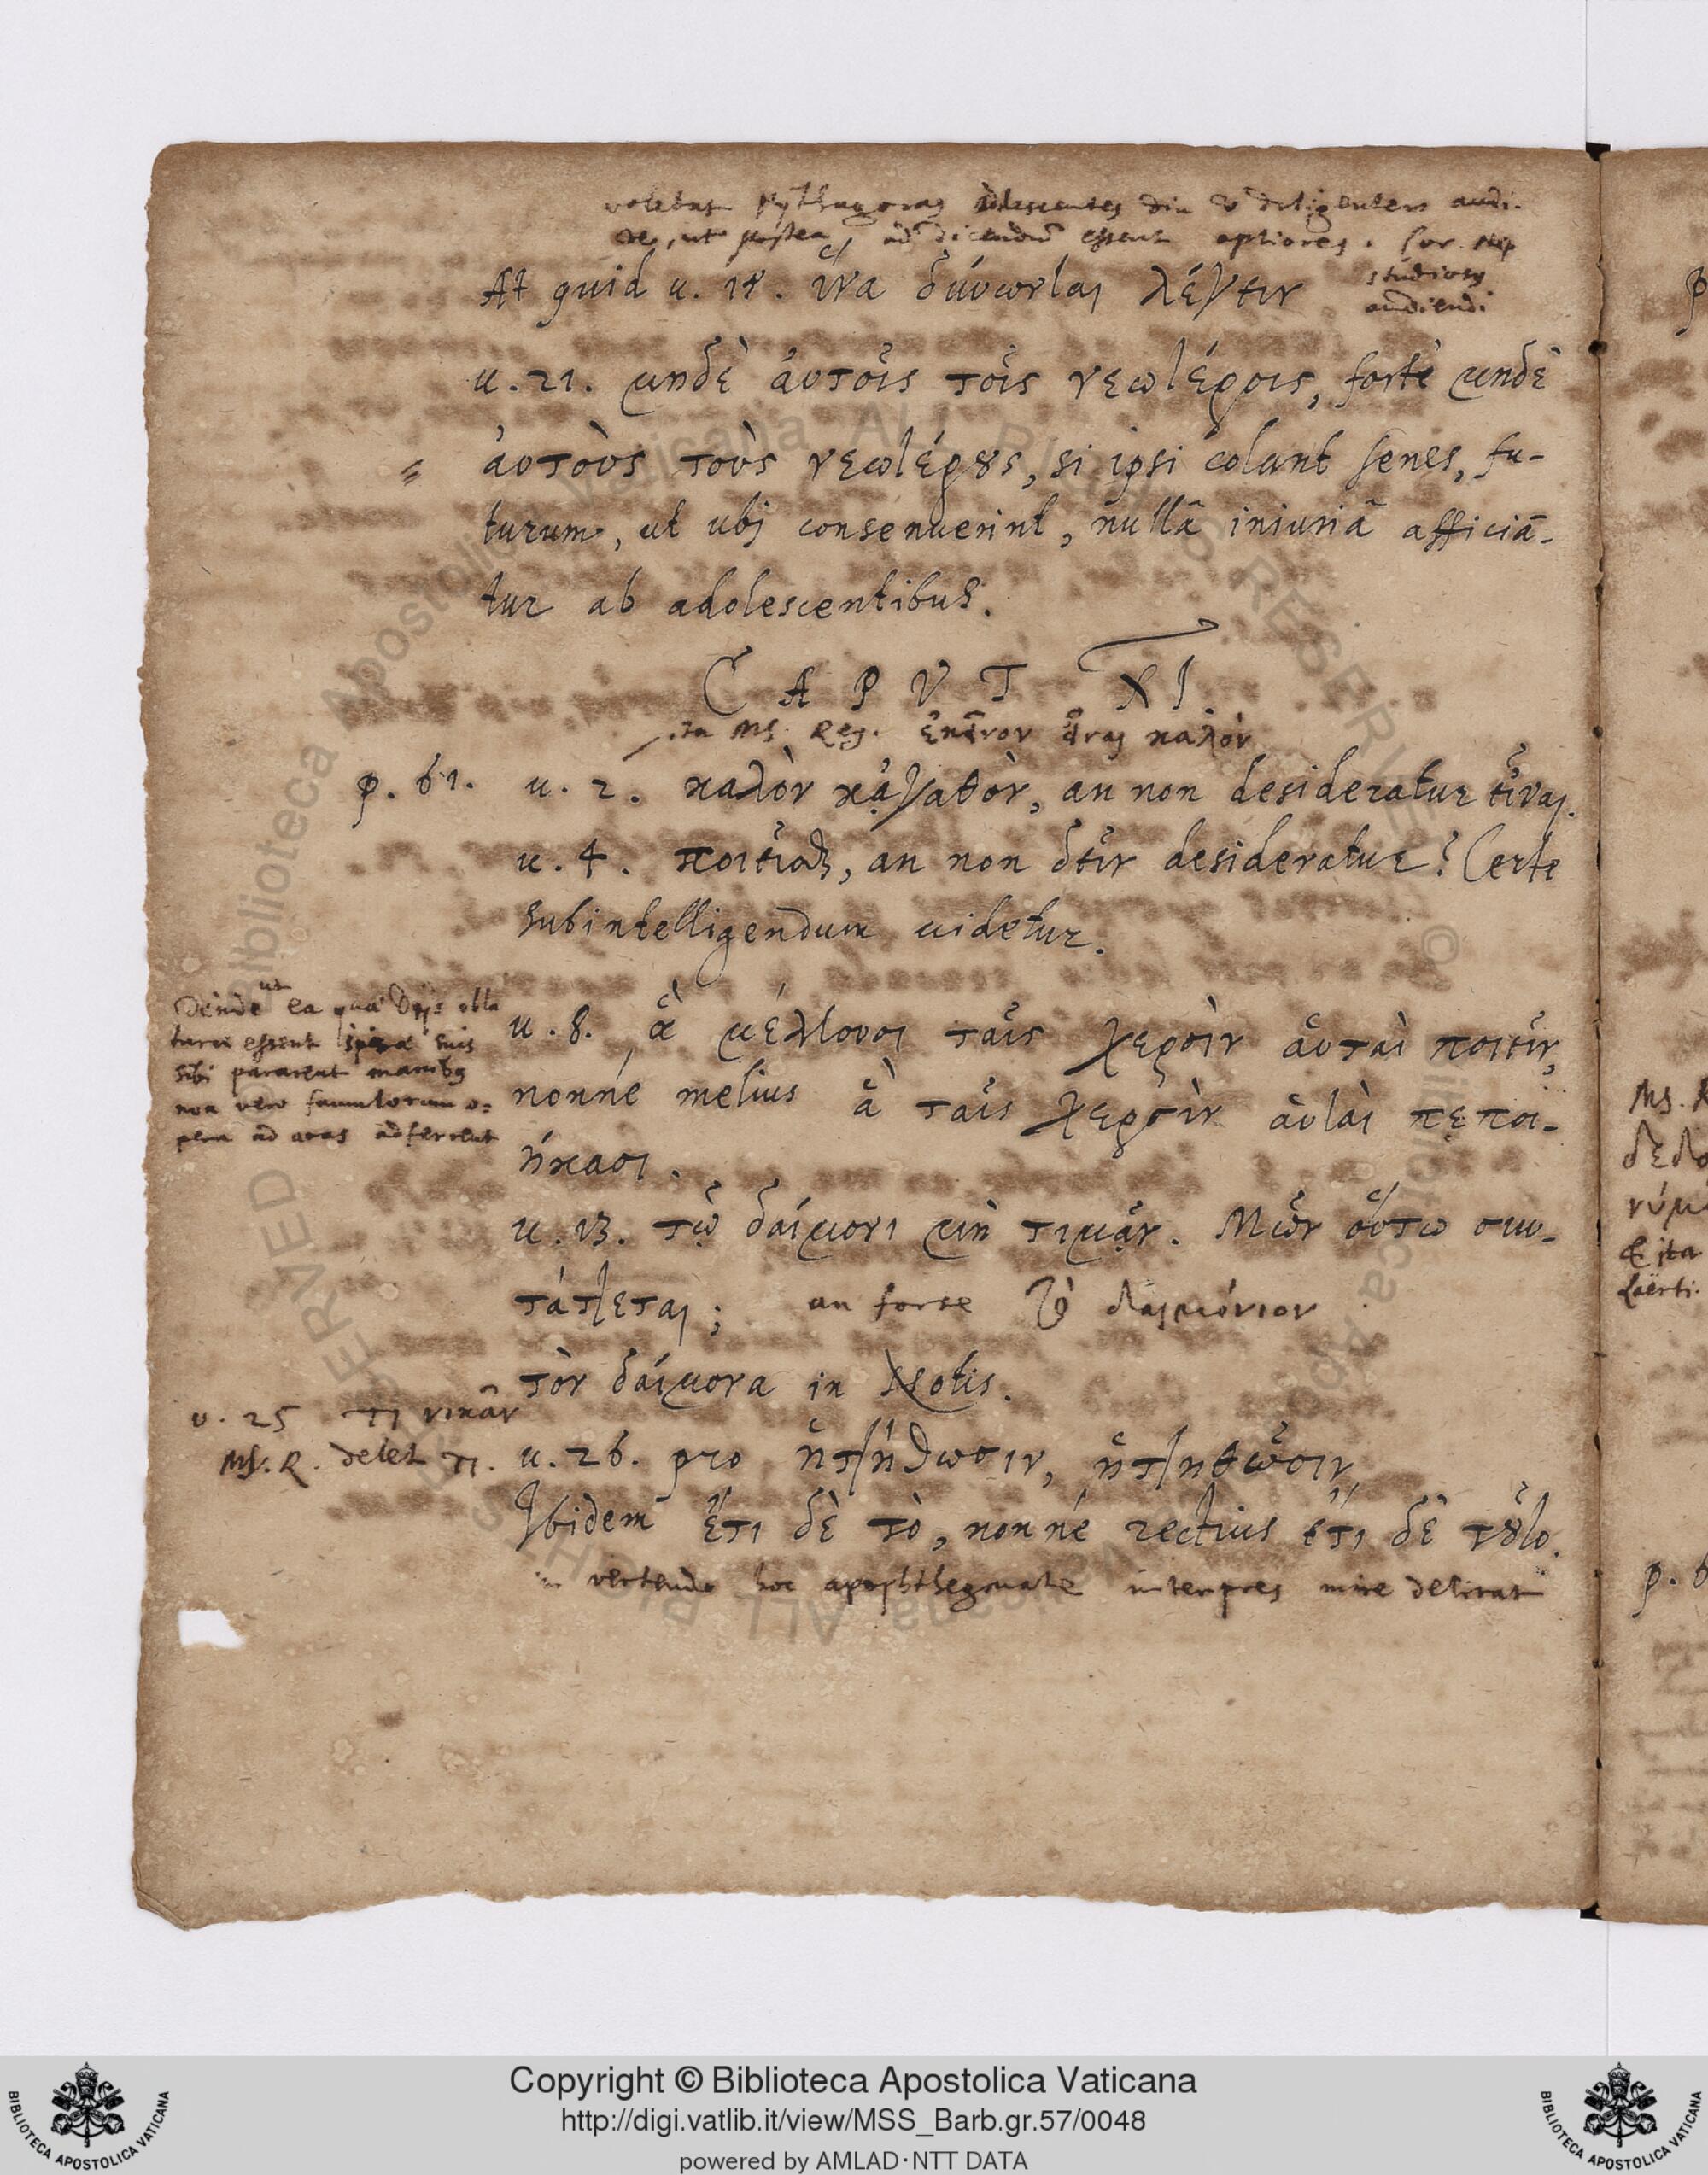 volebat Pythagoras adolescentes diu & diligenter audi-
re, ut postea ad dicendum essent aptiores. for.
studiosus
audiendi
At quid u. 18. ἵνα δύνωνται λέγειν
u. 21. μηδὲ αὐτοῖς τοῖς νεωτέροις, forte μηδὲ
αὐτοὺς τοὺς νεωτέρους, si ipsi colant senes, fu-
turum, ut ubi consenuerint, nullā iniuriā afficiā-
tur ab adolescentibus.
CAPVT XI
in MS. Reg. ἐκεῖνον εἶναι καλὸν
p. 61. u. 2. καλὸν κἀγαθὸν, an non desideratur εἶναι.
u. 4. ποιεῖσθαι, an non δεῖν desideratur? Certe
subintelligendum uidetur.
Deinde ut ea quae Diis obla
tura essent ipsae suis
sibi pararent manibus
non vero famulorum o-
pera ad aras adferrent
u. 8. ἃ μέλλουσι ταῖς χερσὶν αὐταὶ ποιεῖν,
nonné melius ἃ ταῖς χερσὶν αὐταὶ πεποι-
ήκασι.
u. 13. τῷ δαίμονι μὴ τιμᾷν. Μῶν οὕτω συν-
τάττεται; an forse τὸ δαιμόνιον
τὸν δαίμονα in Notis.
u. 25 τι νικᾶν
MS. R. delet τι.
u. 26. pro ἡττήθωσιν, ἡττηθῶσιν
Ibidem ἔτι δὲ τὸ, nonné rectius ἔτι δὲ τοῦτο.
in vertendo hoc apophthegmate interpres mire delirat
Copyright © Biblioteca Apostolica Vaticana
http://digi.vatlib.it/view/MSS_Barb.gr.57/0048
powered by AMLAD·NTT DATA